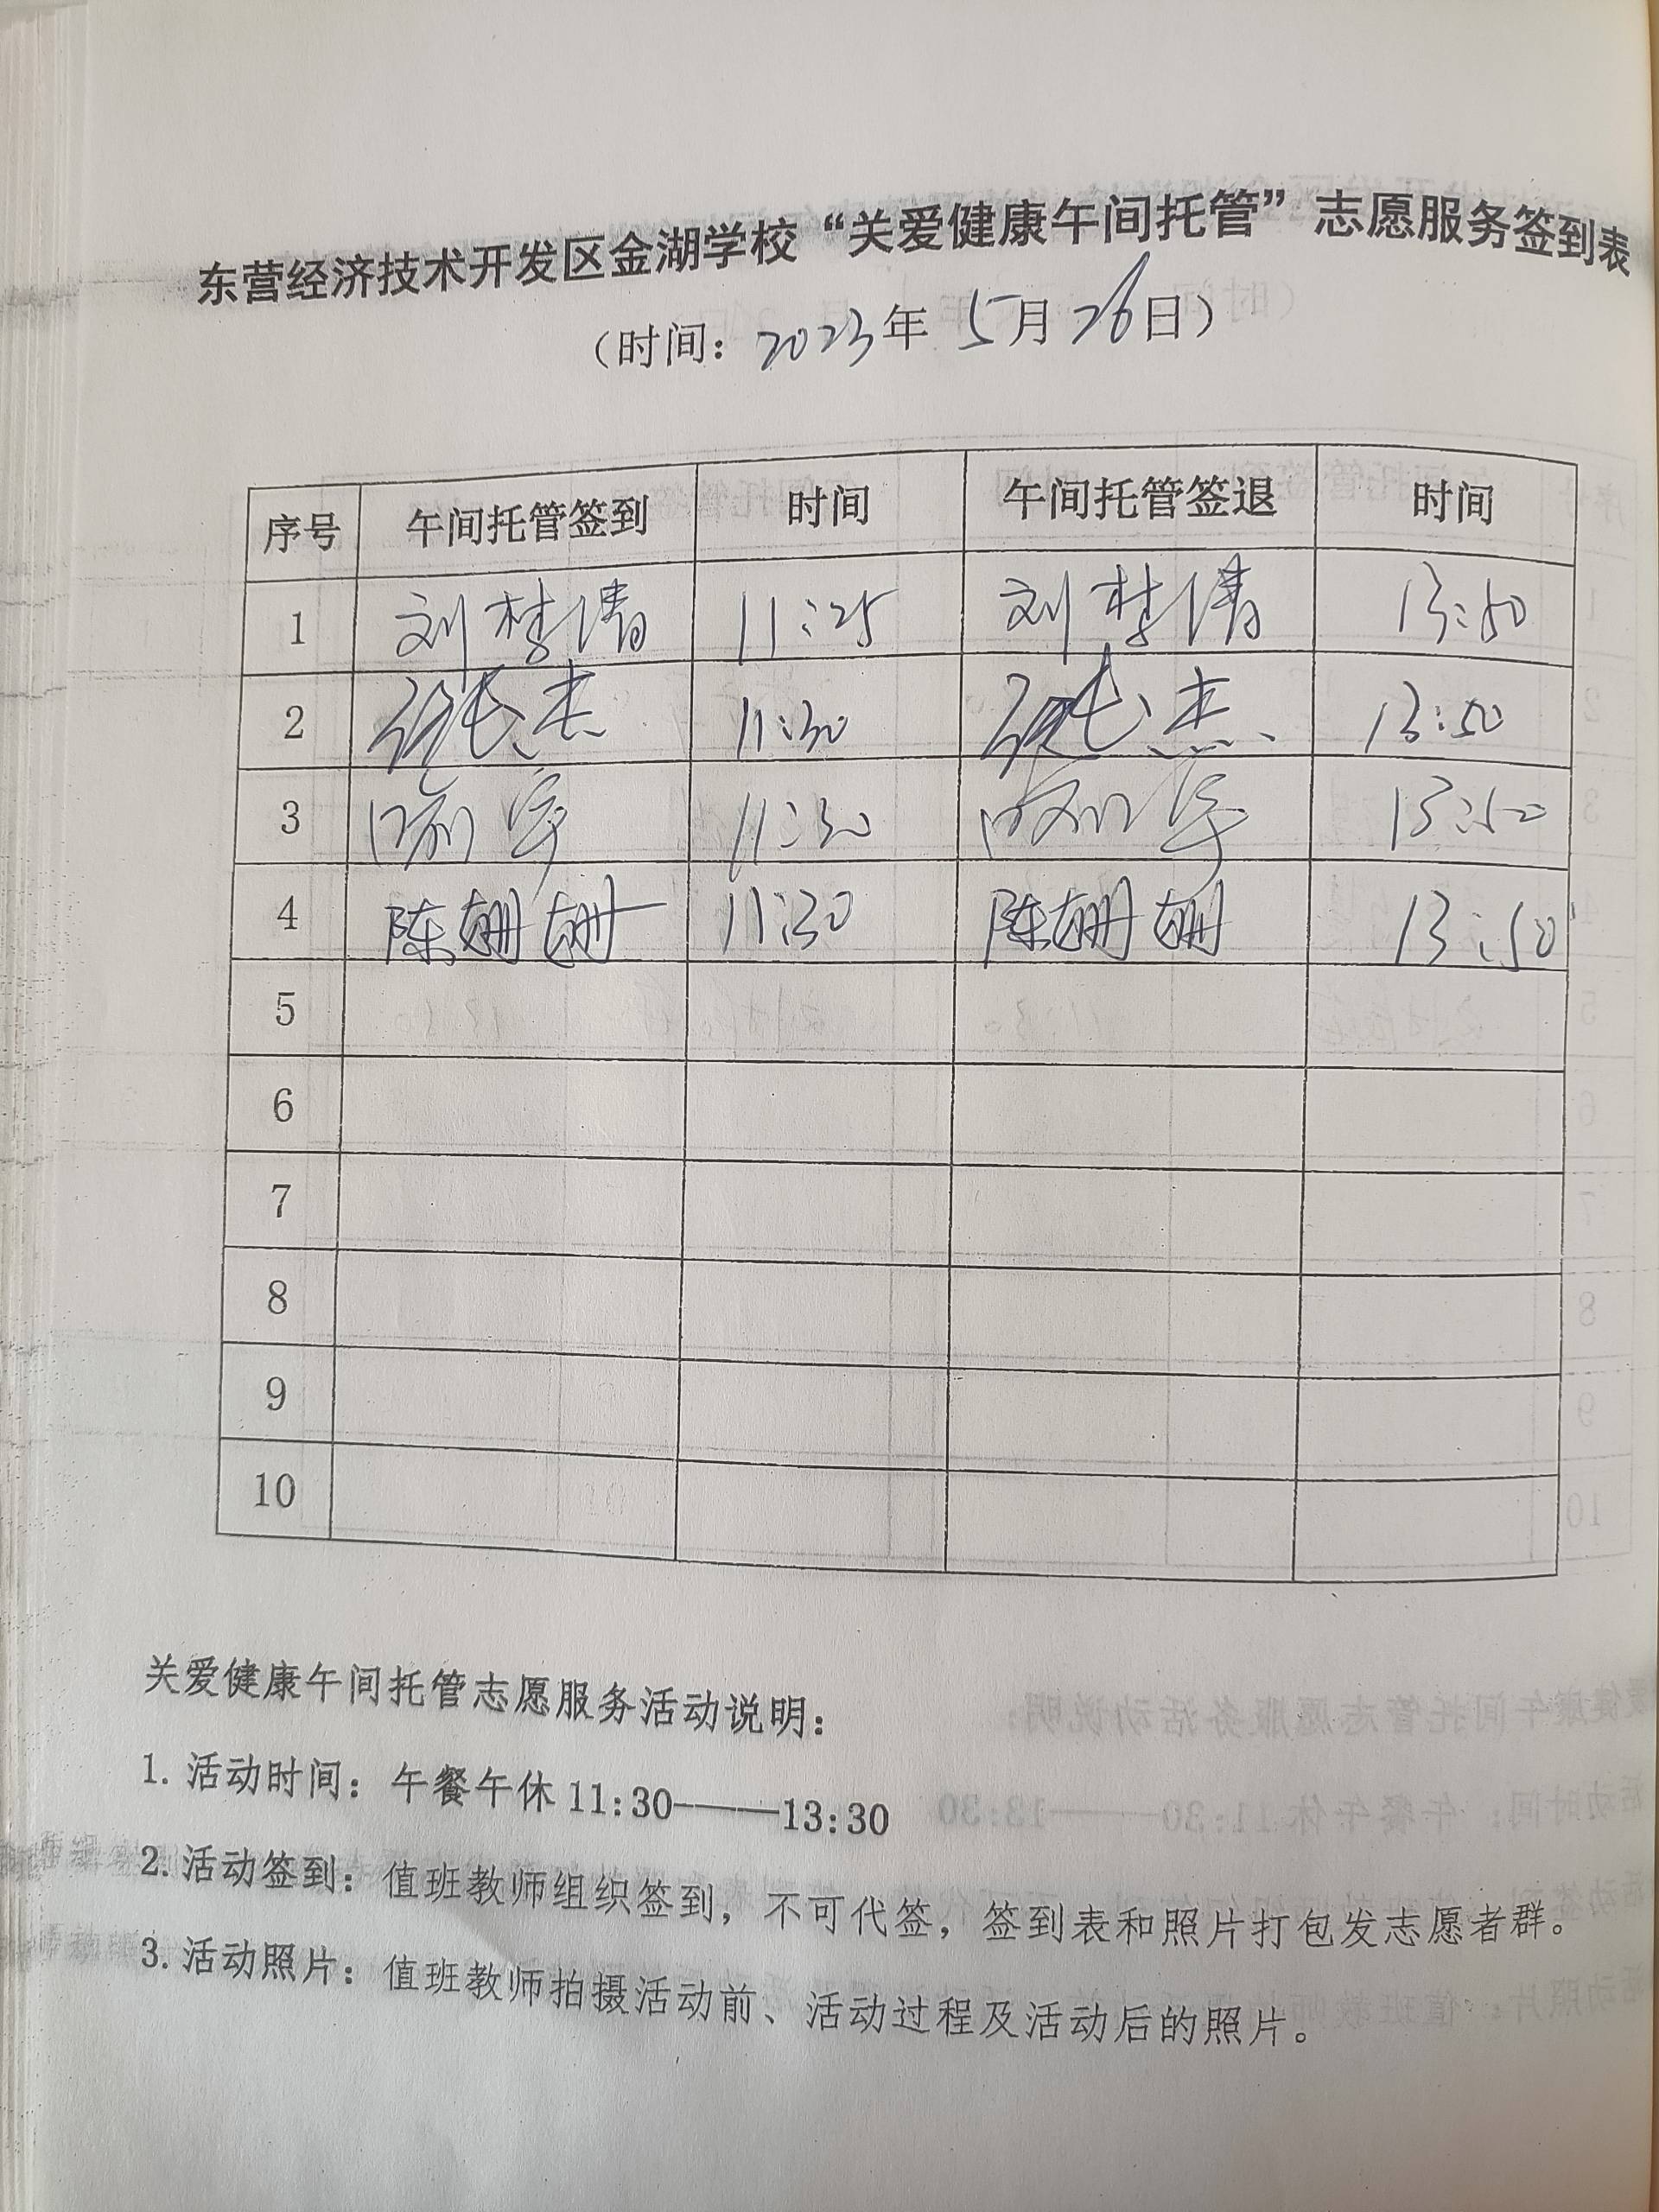 东营经济技术开发区金湖学校“关爱健康午间托管”志愿服务签到表
（时间：2023年5月26日）
序号 午间托管签到 时间 午间托管签退 时间
1 刘梦倩 11:25 刘梦倩 13:50
2 杰 11:30 杰 13:50
3 宇 11:30 宇 13:50
4 陈姗姗 11:30 陈姗姗 13:50
5
6
7
8
9
10
关爱健康午间托管志愿服务活动说明：
1. 活动时间：午餐午休11:30———13:30
2. 活动签到：值班教师组织签到，不可代签，签到表和照片打包发志愿者群。
3. 活动照片：值班教师拍摄活动前、活动过程及活动后的照片。